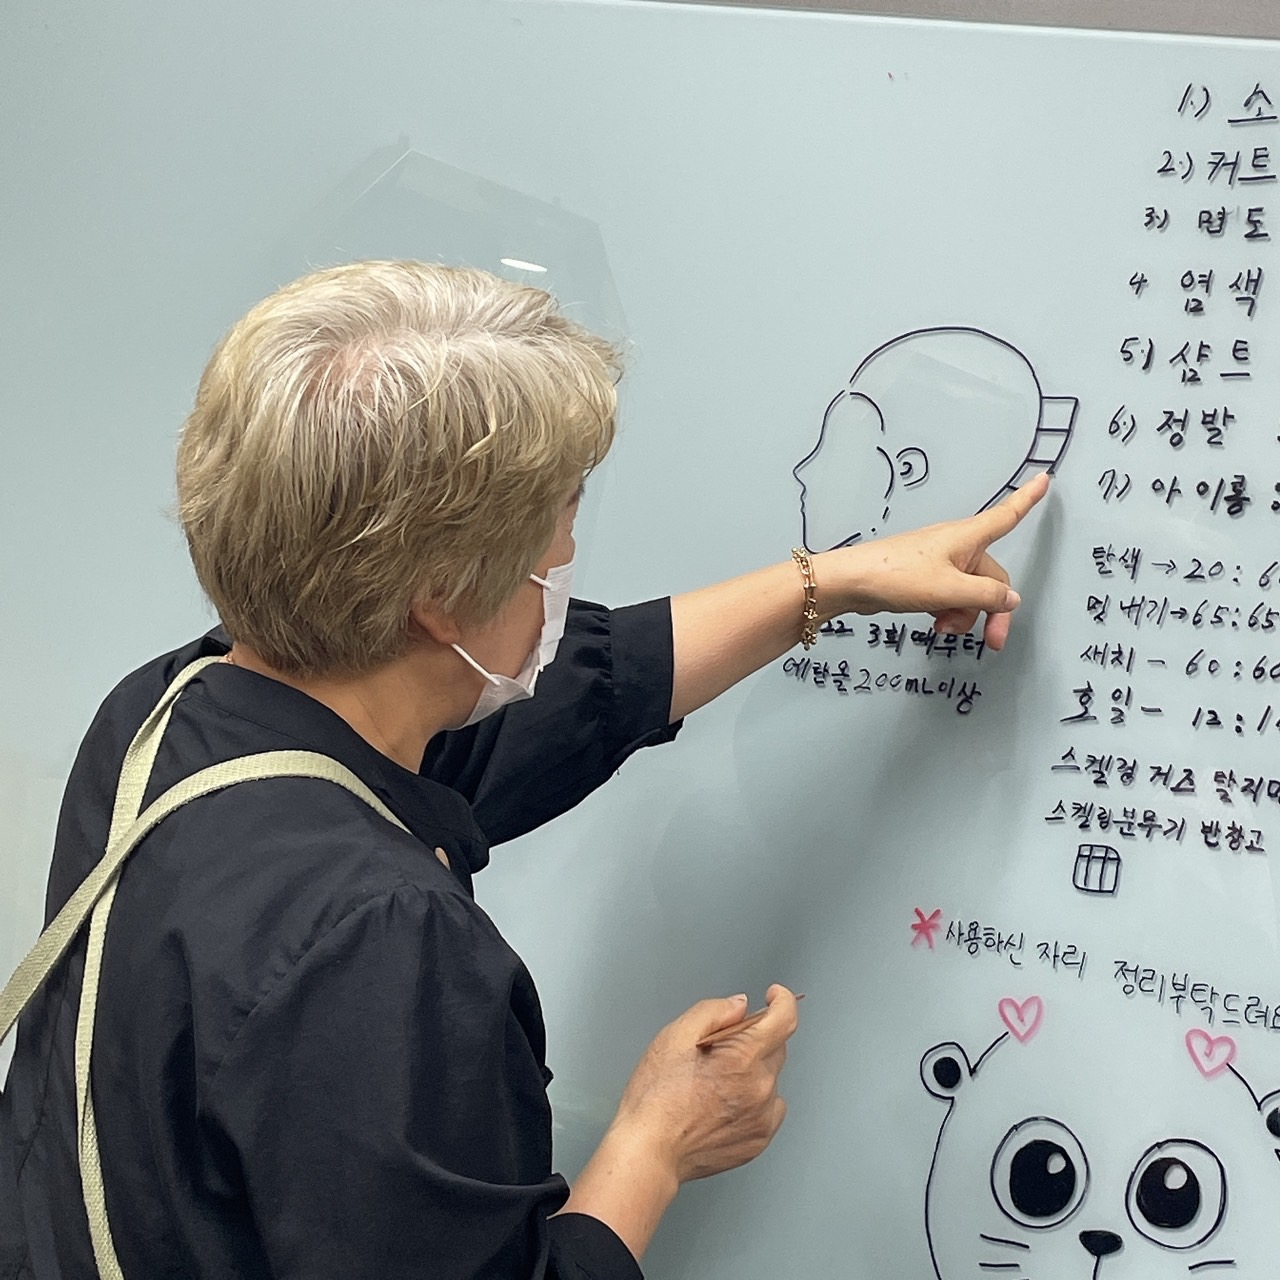 1.) 소
2.) 커트
3.) 면도
4 염색
5.) 샴트
6.) 정발
7.) 아이롱
탈색 → 20 : 6
멋내기 → 65 : 65
새치 - 60 : 60
호일 - 12 : 1
3회때부터
에탄올 200mL이상
스켈링 거즈 탈지면
스켈링분무기 반창고
* 사용하신 자리 정리부탁드려요